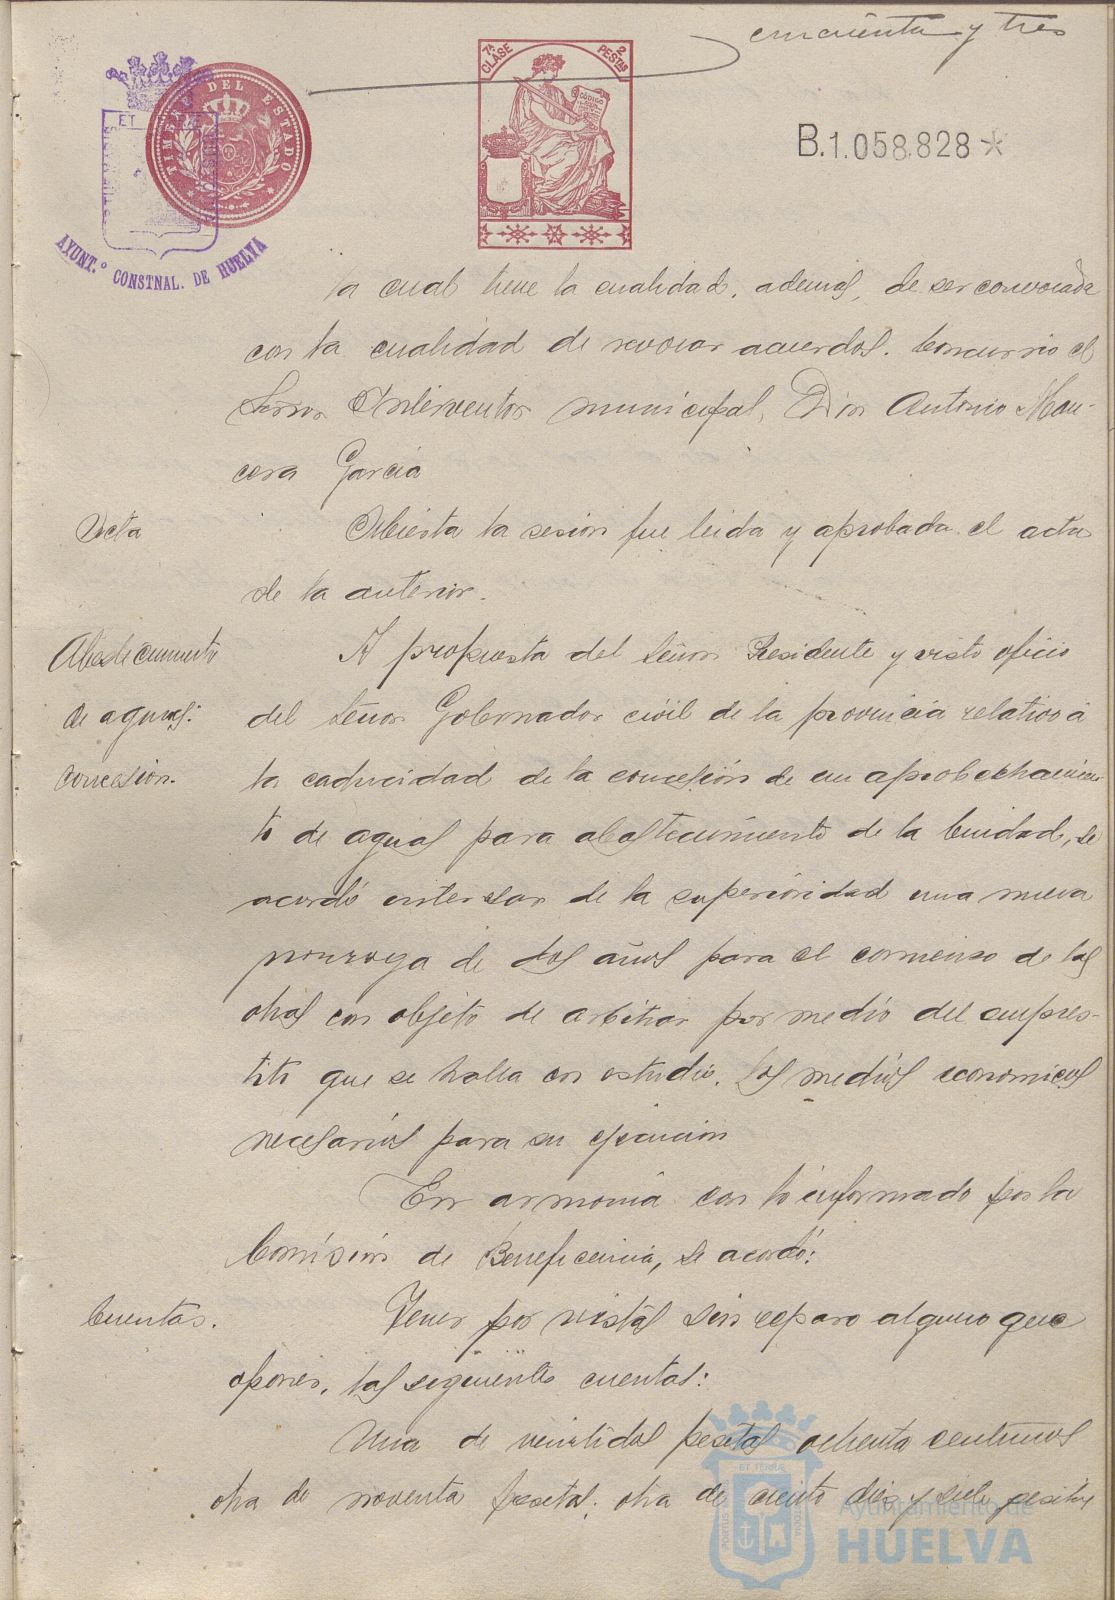 cincuenta y tres
7ª CLASE
2 PESETAS
CÓDIGO
TIMBRE DEL ESTADO
B.1.058.828
AYUNT.º CONSTNAL. DE HUELVA
la cual tiene la cualidad, ademas, de ser convocada
con la cualidad de revocar acuerdos. Concurrio el
Señor Interventor municipal, Don Antonio Man-
cera Garcia
Acta
Abierta la sesion fue leida y aprobada el acta
de la anterior.
Abastecimiento
de aguas:
concesion.
A propuesta del Señor Presidente y visto oficio
del Señor Gobernador civil de la provincia relativo á
la caducidad de la concesión de un aprobechamien-
to de aguas para abastecimiento de la Ciudad, se
acordó interesar de la superioridad una nueva
prorroga de dos años para el comienzo de las
obras con objeto de arbitrar por medio del empres-
tito que se halla en estudio, los medios economicos
necesarios para su ejecucion
En armonia con lo informado por la
Comisión de Beneficencia, se acordó:
Cuentas.
Tener por vistas sin reparo alguno que
oponer, las siguientes cuentas:
Una de veintidos pesetas ochenta centimos
otra de noventa pesetas; otra de ciento diez y siete pesetas
Ayuntamiento de
HUELVA